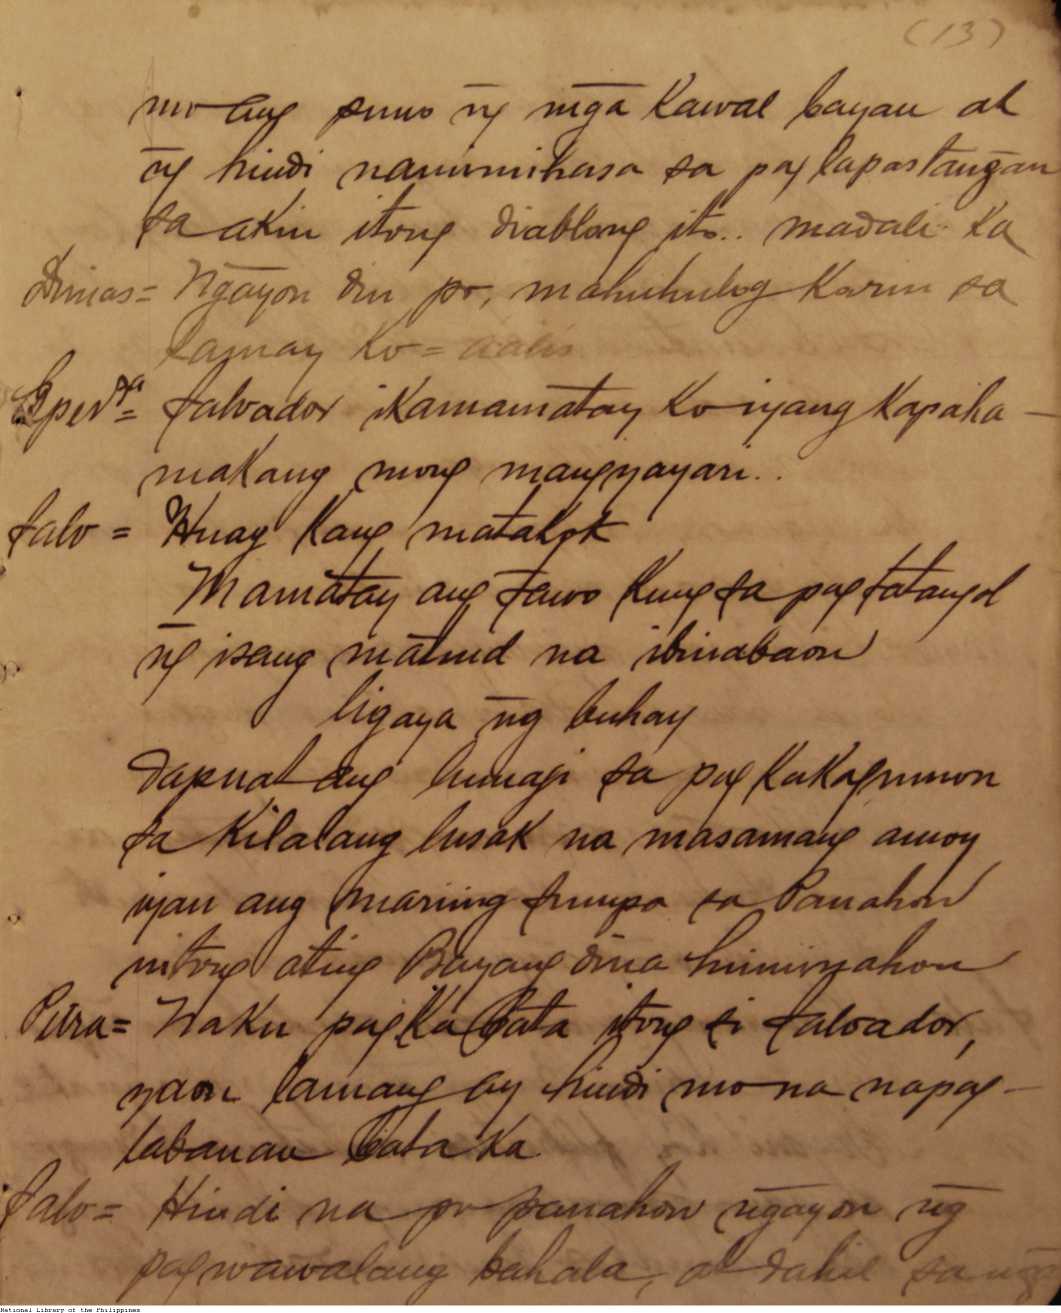 (13)
mo ang puno n̄g m̄ga Kawal bayan at
n̄g hindi namimihasa sa pag lapastan̄gan
sa akin itong diablong ito.. madali Ka
Dimas = N̄gayon din po, mahuhulog Karin sa
Kamay Ko = aalis
Sper.sa = Salvador ikamamatay Ko iyang Kapaha-
makang mong mangyayari..
Salv = Huag Kang matakot
Mamatay ang tawo Kung sa pag tatangol
n̄g isang matuid na ibinabaon
ligaya n̄g buhay
Dapuat ang humagi sa pag KaKagumon
sa Kilalang lusak na masamang amoy
iyan ang mariing sumpa sa Panahon
nitong ating Bayang dina huminyahon
Pura = Naku pagKa Bata itong si Salvador,
yaon lamang ay hindi mo na napag-
labanan bata Ka
Salv = Hindi na po panahon n̄gayon n̄g
pagwawalang bahala, at dahil sa m̄ga
National Library of the Philippines